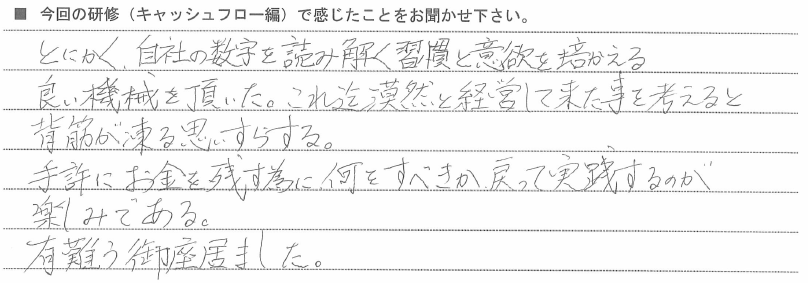 ■ 今回の研修（キャッシュフロー編）で感じたことをお聞かせ下さい。
とにかく、自社の数字を読み解く習慣と意欲を培かえる
良い機械を頂いた。これ迄漠然と経営して来た事を考えると
背筋が凍る思いすらする。
手許にお金を残す為に何をすべきか、戻って実践するのが
楽しみである。
有難う御座居ました。